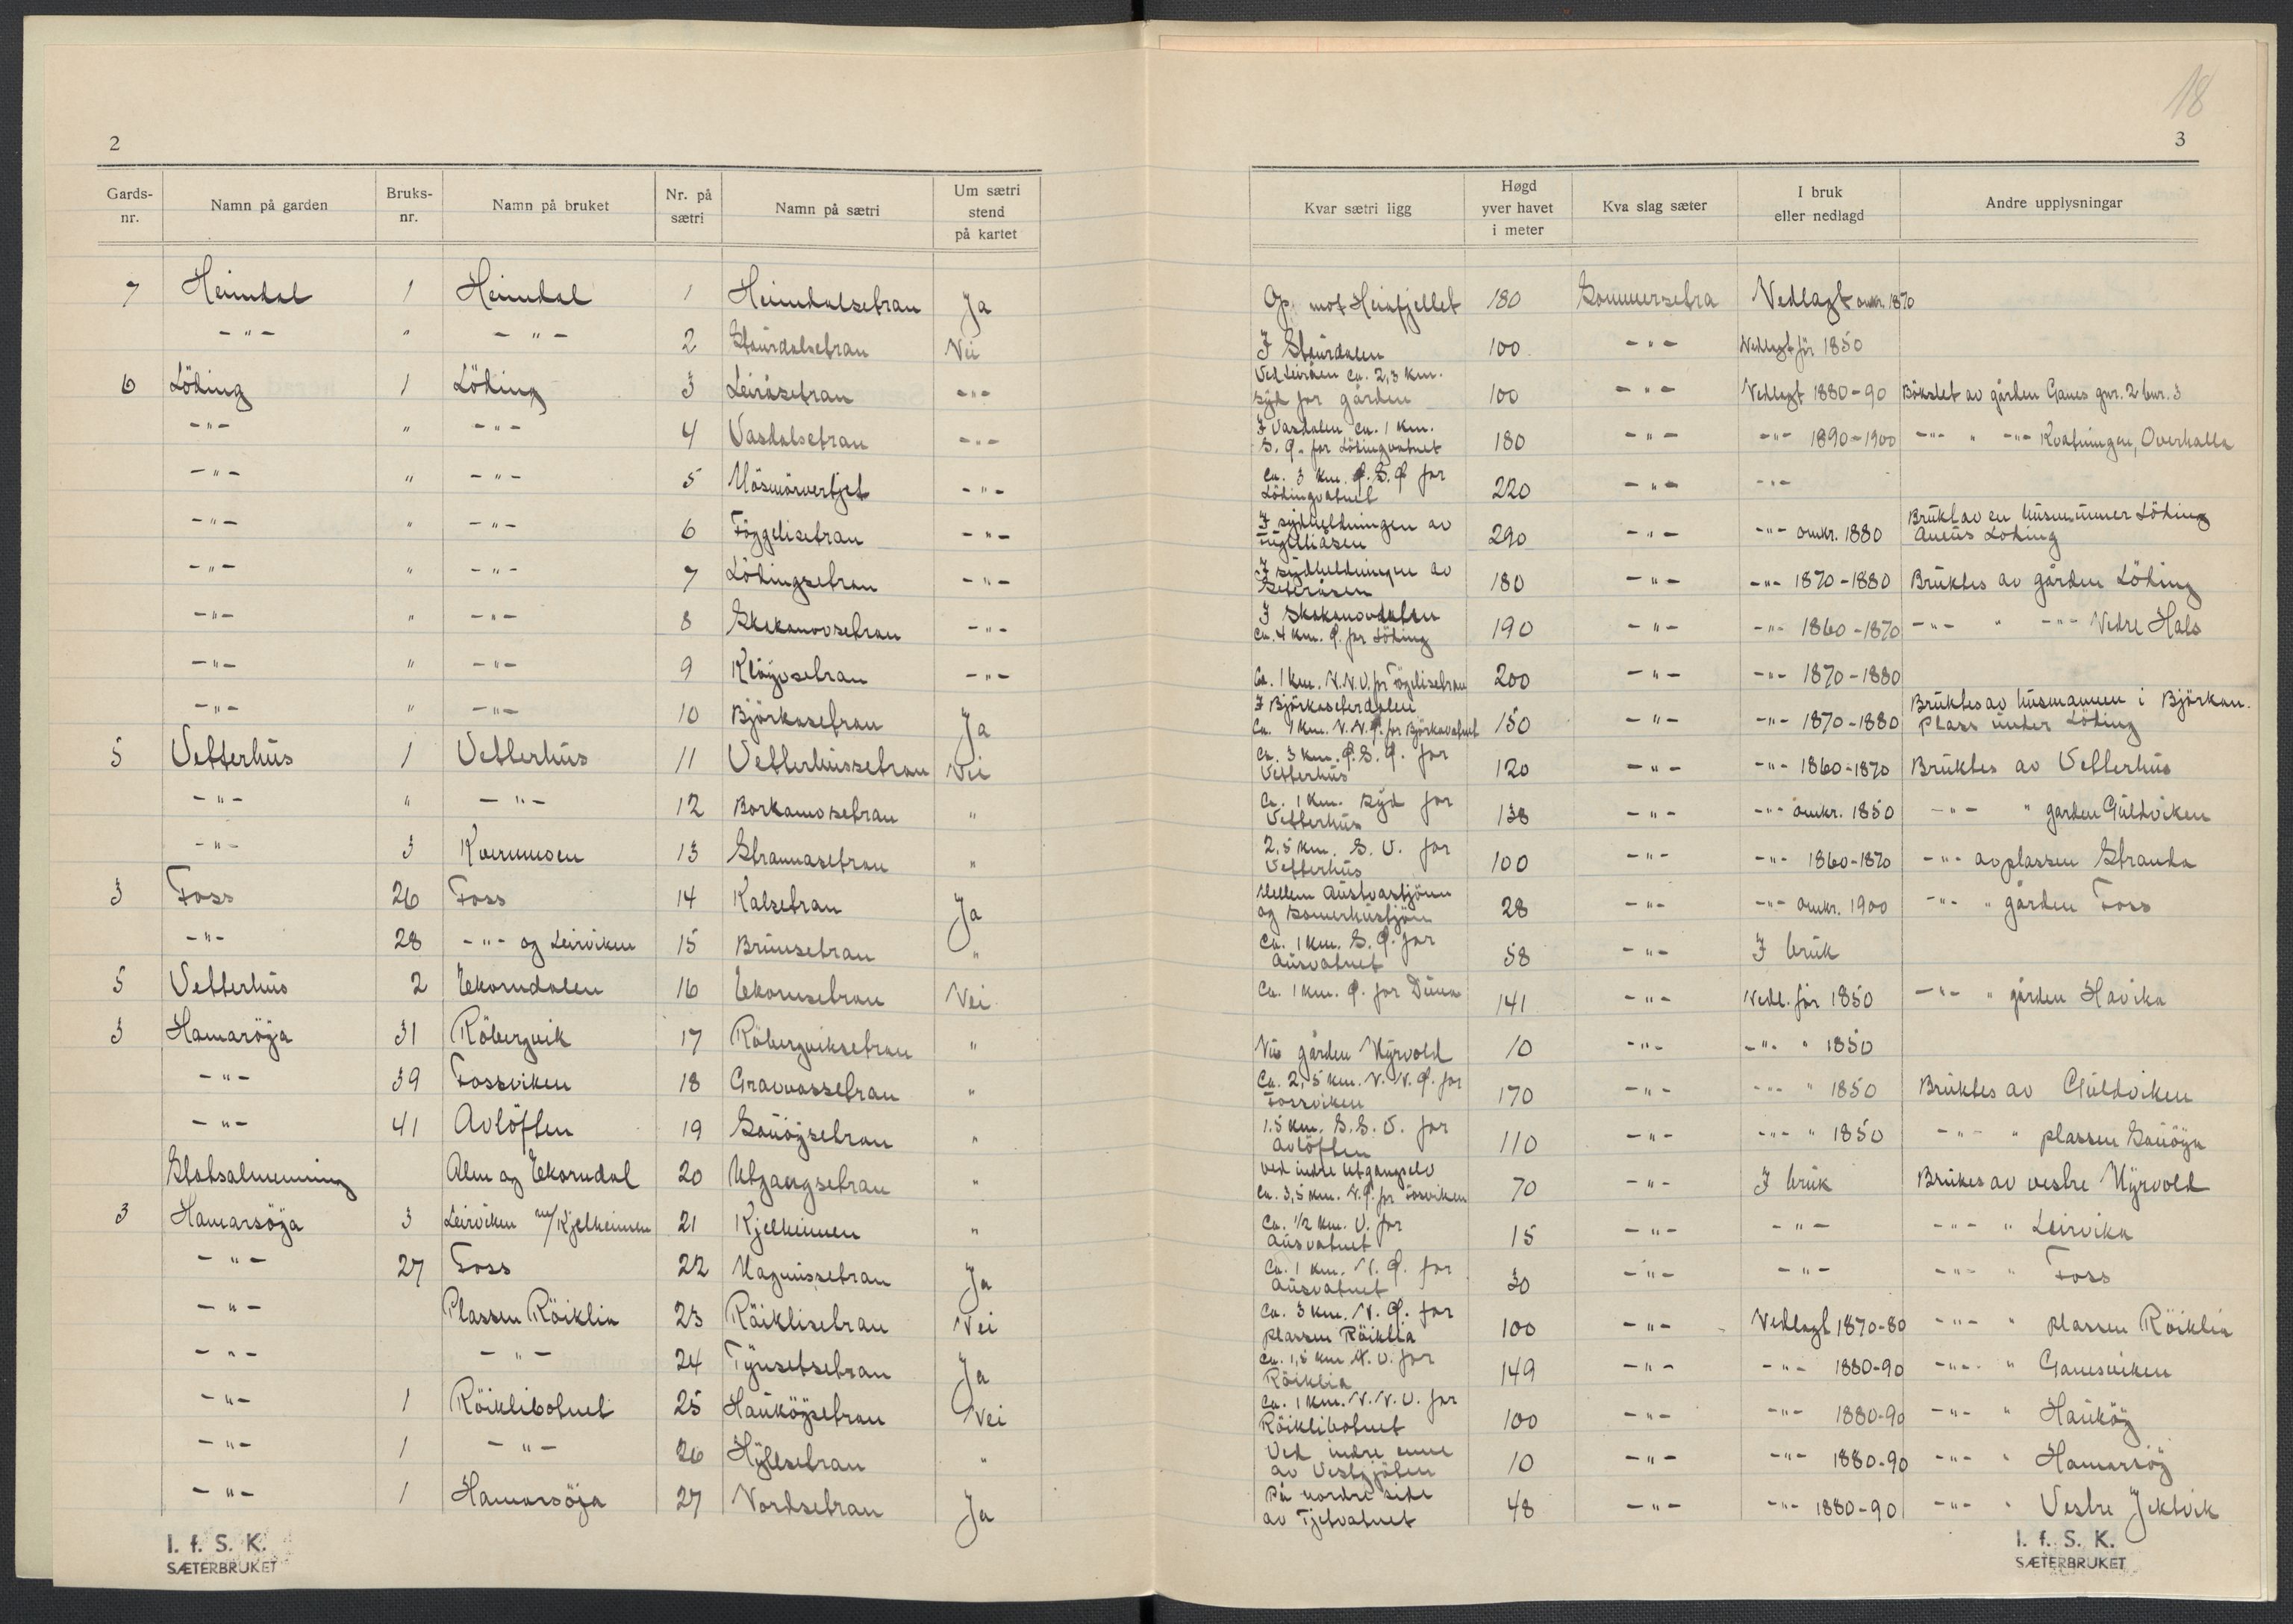 18
2
3
Gards-nr. Namn på garden Bruks-nr. Namn på bruket Nr. på sætri Namn på sætri Um sætri stend på kartet Kvar sætri ligg Høgd yver havet i meter Kva slag sæter I bruk eller nedlagd Andre upplysningar
7 Heimdal 1 Heimdal 1 Heimdalsetran Ja Op mot Heiafjellet 180 Sommersetra Nedlagt omkr. 1870
-"- " -"- 2 Staurdalsetran Nei I Staurdalen 100 -"- Nedlagt før 1850
6 Löding 1 Löding 3 Leiråsetran -"- Ved Leiråen ca. 2,3 km. syd for gården 100 -"- Nedlagt 1880-90 Bökslet av gården Ganes gnr. 2 bnr. 3
-"- " -"- 4 Vasdalsetran -"- I Vasdalen ca. 1 km. S. Ø. for Lödingvatnet 180 -"- -"- 1890-1900 -"- " -"- Kvatningen, Overhalla
-"- " -"- 5 Mösmörvertjet -"- Ca. 3 km. Ø.S.Ø for Lödingvatnet 220 -"- -"-
-"- " -"- 6 Föggelisetran -"- I sydheldningen av 290 -"- -"- omkr. 1880 Brukt av en husm. under Löding Löding
-"- " -"- 7 Lödingsetran -"- I sydheldningen av Seteråsen 180 -"- -"- 1870-1880 Bruktes av gården Löding
-"- " -"- 8 Skakanovsetran -"- I Skakanovdalen ca. 4 km. Ø. for Löding 190 -"- -"- 1860-1870 -"- " -"- Nedre Hals
-"- " -"- 9 Klöyvsetran -"- Ca. 1 km. N.N.V. for Föggelisetran 200 -"- -"- 1870-1880
-"- " -"- 10 Björkasetran Ja I Björkaseterdalen Ca. 1 km. N.N.Ø. for Björkavatnet 150 -"- -"- 1870-1880 Bruktes av husmannen i Björkan. Plass under Löding
5 Vetterhus 1 Vetterhus 11 Vetterhussetran Nei Ca. 3 km. Ø.S.Ø. for Vetterhus 120 -"- -"- 1860-1870 Bruktes av Vetterhus
-"- " -"- 12 Borkamosetran " Ca. 1 km. syd for Vetterhus 138 -"- -"- omkr. 1850 -"- " garden Guldviken
-"- 3 Kvernmoen 13 Strannasetran " 2,5 km. S. V. for Vetterhus 100 -"- -"- 1860-1870 -"- av plassen Stranda
3 Foss 26 Foss 14 Kalsetran Ja Mellem Austvastjönn og Somerhustjön 28 -"- -"- omkr. 1900 -"- " gården Foss
-"- 28 -"- og Leirviken 15 Brunsetran " Ca. 1 km. S. Ø. for Ausvatnet 58 -"- I bruk
5 Vetterhus 2 Ekorndalen 16 Ekornsetran Nei Ca. 1 km. Ø. for Duna 141 -"- Nedl. før 1850 -"- " gården Havika
3 Hamaröya 31 Röbergvik 17 Röbergviksetran " Nu gården Myrvold 10 -"- -"- " 1850
-"- 39 Fossviken 18 Gravvassetran " Ca. 2,5 km. N.N.Ø. for Fossviken 170 -"- -"- " 1850 Bruktes av Guldviken
-"- 41 Avlöften 19 Sauöysetran " 1.5 km. S.S.V. for Avlöften 110 -"- -"- " 1850 -"- " plassen Sauöya
Statsalmenning Alm og Ekorndal 20 Utgangsetran " ved indre Utgangselv ca. 3,5 km. N.Ø. for Fosviken 70 -"- I bruk Brukes av vestre Myrvold
3 Hamarsöya 3 Leirviken m/Kjelheimen 21 Kjelheimen " Ca. 1/2 km. V. for Ausvatnet 15 -"- -"- -"- " Leirvika
-"- 27 Foss 22 Magnussetran Ja Ca. 1 km. N. Ø. for Ausvatnet 30 -"- -"- -"- " Foss
-"- Plassen Röiklia 23 Röiklisetran Nei Ca. 3 km. N. Ø. for plassen Röiklia 100 -"- Nedlagt 1870-80 -"- " plassen Röiklia
-"- -"- 24 Tynsetsetran Ja Ca. 1,5 km N. V. for Röiklia 149 -"- -"- 1880-90 -"- " Gansviken
-"- 1 Röiklibotnet 25 Hauköysetran Nei Ca. 1 km. N.N.V. for Röiklibotnet 100 -"- -"- 1880-90 -"- " Hauköy
-"- 1 -"- 26 Hyllsetran " Ved indre enne av Vestsjöen 10 -"- -"- 1880-90 -"- " Hamarsöy
-"- 1 Hamarsöya 27 Nordsetran Ja På nordre side av Tjetvatnet 48 -"- -"- 1880-90 -"- " Vestre Jektvik
I. f. S. K.
SÆTERBRUKET
I. f. S. K.
SÆTERBRUKET